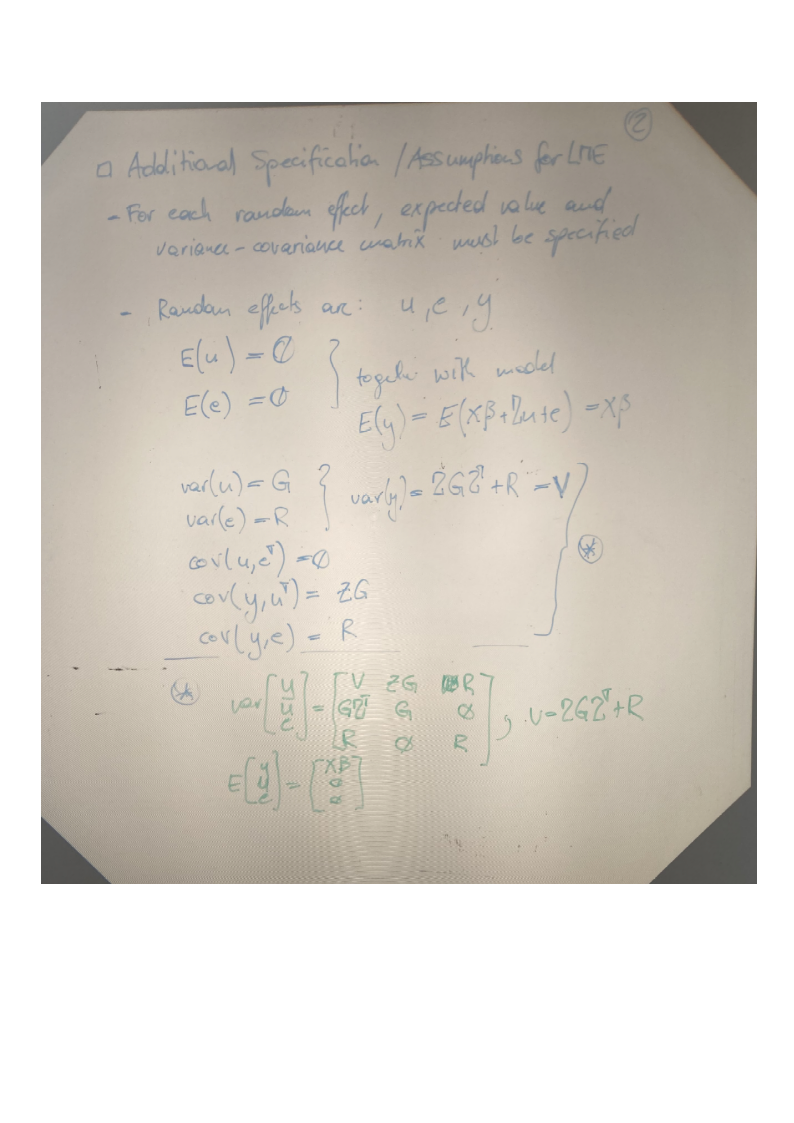 2
□ Additional Specification / Assumptions for LME
- For each random effect, expected value and
variance-covariance matrix must be specified
- Random effects are: u, e, y
E(u) = 0 } together with model
E(e) = 0 E(y) = E(Xβ+Zu+e) = Xβ
var(u) = G } var(y) = ZGZᵀ + R = V
var(e) = R
cov(u,eᵀ) = 0
cov(y,uᵀ) = ZG
cov(y,e) = R
*
* var [y u e] = [V ZG R
GZᵀ G 0
R 0 R], V=ZGZᵀ+R
E [y u e] = [Xβ 0 0]